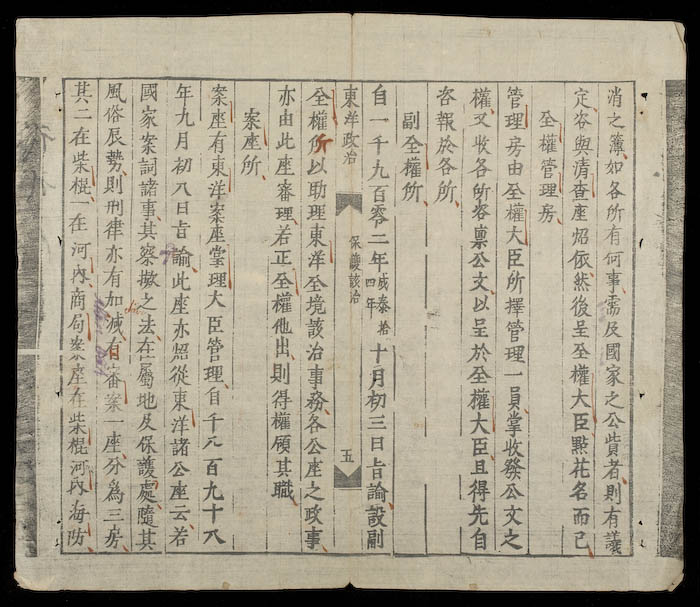 消之簿如各所有何事需及國家之公費者則有議
定咨與清查座炤依然後呈全權大臣點花名而已
全權管理房
管理房由全權大臣所擇管理一員掌收發公文之
權又收各所咨禀公文以呈於全權大臣且得先自
咨報於各所
副全權所
自一千九百零二年成泰拾四年十月初三日旨諭設副
東洋政治 保護該治 五
全權所以助理東洋全境該治事務各公座之政事
亦由此座審理若正全權他出則得權領其職
案座所
案座有東洋案座掌理大臣管理自千八百九十八
年九月初八日旨諭此座亦炤從東洋諸公座云若
國家案詞諸事其察撿之法在屬地及保護處隨其
風俗辰勢則刑律亦有加減有審案一座分爲三房
其二在柴棍一在河內商局案座在柴棍河內海防